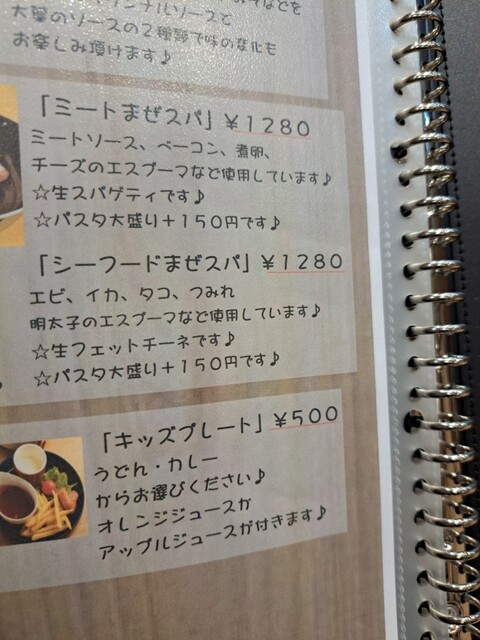 ナルソースと
大葉のソースの2種類で味の変化も
お楽しみ頂けます♪
「ミートまぜスパ」¥1280
ミートソース、ベーコン、煮卵、
チーズのエスプーマなど使用しています♪
☆生スパゲティです♪
☆パスタ大盛り+150円です♪
「シーフードまぜスパ」¥1280
エビ、イカ、タコ、つみれ
明太子のエスプーマなど使用しています♪
☆生フェットチーネです♪
☆パスタ大盛り+150円です♪
「キッズプレート」¥500
うどん・カレー
からお選びください♪
オレンジジュースか
アップルジュースが付きます♪